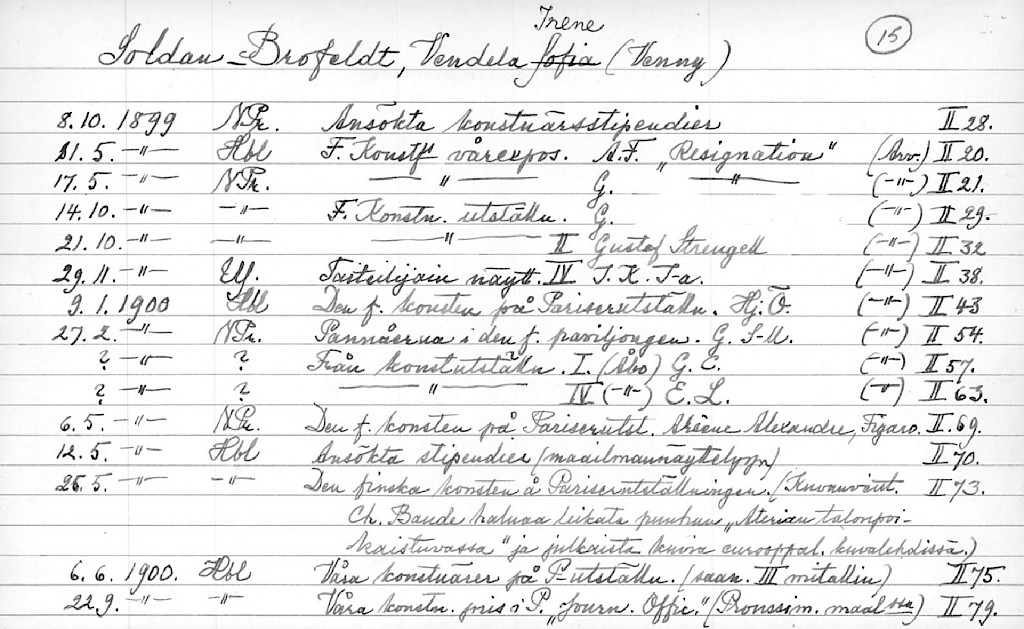 Irene
Soldan-Brofeldt, Vendela Sofia (Venny) 15
8.10. 1899 N.Pr. Ansökta konstnärsstipendier II 28.
11.5. -"- Hbl F. Konstf vårexpos. A.F. „Resignation" (Arv.) II 20.
17.5. -"- N.Pr. -"- G. -"- (-"-) II 21.
14.10. -"- -"- F. Konstn. utställn. G. (-"-) II 29.
21.10. -"- -"- -"- II Gustaf Strengell (-"-) II 32
29.11. -"- Uf. Taiteilijain näytt. IV J.K. J-a. (-"-) II 38.
9.1. 1900 Hbl Den f. konsten på Pariserutställn. Hj. Ö. (-"-) II 43
27.2. -"- N.Pr. Pannåerna i den f. paviljongen. G. S-ll. (-"-) II 54.
? -"- ? Från konstutställn. I. (Åbo) G. E. (-"-) II 57.
? -"- ? -"- IV (-"-) E. L. (-"-) II 63.
6.5. -"- N.Pr. Den f. konsten på Pariserutst. Arsène Alexandre, Figaro. II. 69.
12.5. -"- Hbl Ansökta stipendier (maailmannäyttelyyn) II 70.
26.5. -"- -"- Den finska konsten å Pariserutställningen. (Kuvanveist. II 73.
Ch. Baude haluaa leikata puuhun „Aterian talonpoi-
kaistuvassa" ja julkaista kuvia eurooppal. kuvalehdissä.)
6.6. 1900. Hbl Våra konstnärer på P-utställn. (saan. III mitallin) II 75.
22.9. -"- -"- Våra konstn. pris i P. „Journ. Offic." (Pronssim. maal ssa) II 79.